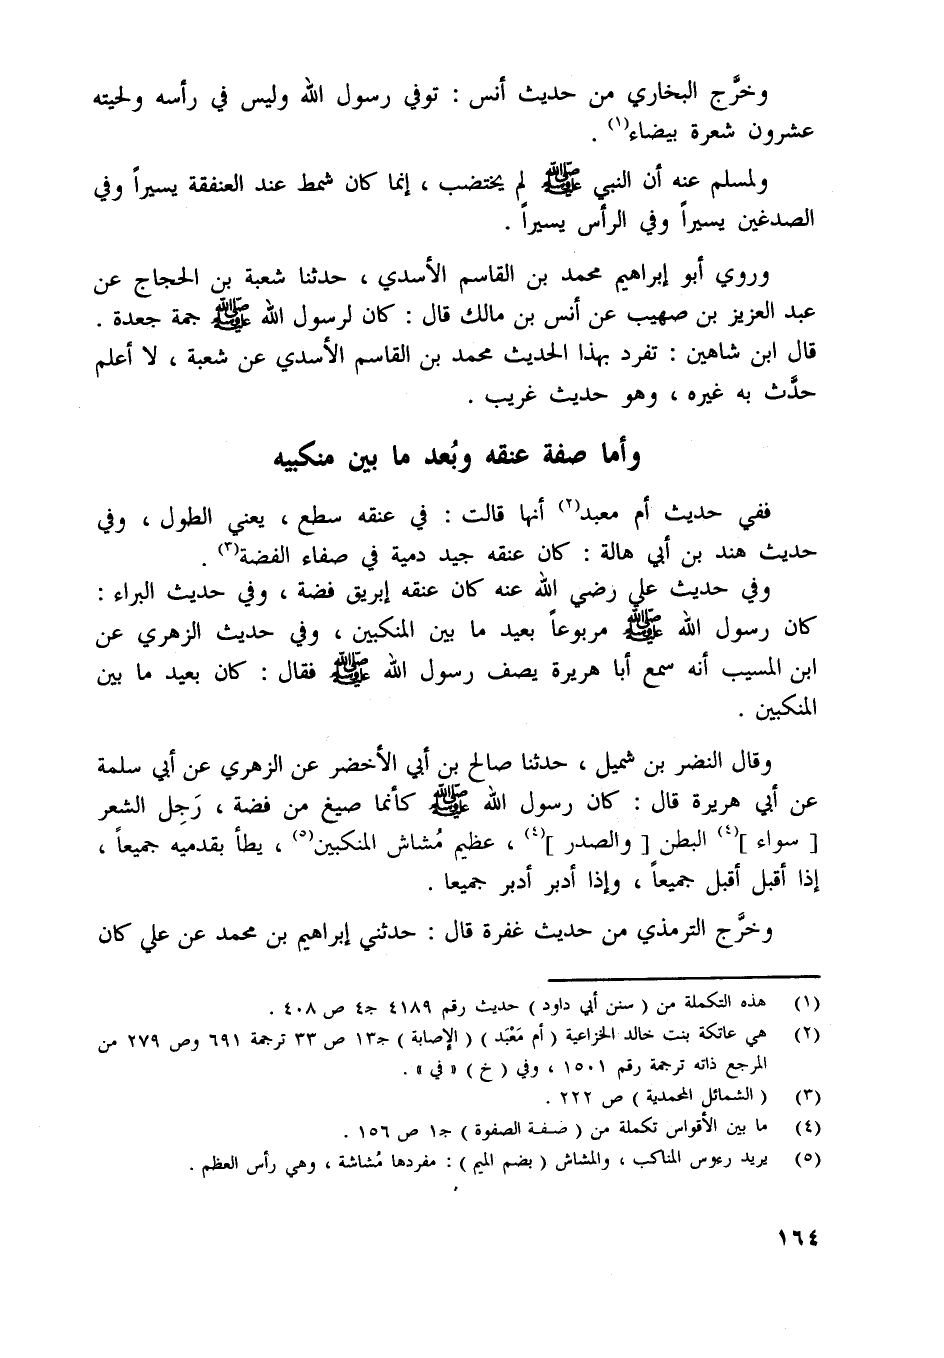 وخرَّج البخاري من حديث أنس : توفي رسول الله وليس في رأسه ولحيته
عشرون شعرة بيضاء(١) .
ولمسلم عنه أن النبي ﷺ لم يختضب ، إنما كان شمط عند العنفقة يسيراً وفي
الصدغين يسيراً وفي الرأس يسيراً .
وروي أبو إبراهيم محمد بن القاسم الأسدي ، حدثنا شعبة بن الحجاج عن
عبد العزيز بن صهيب عن أنس بن مالك قال : كان لرسول الله ﷺ جمة جعدة .
قال ابن شاهين : تفرد بهذا الحديث محمد بن القاسم الأسدي عن شعبة ، لا أعلم
حدَّث به غيره ، وهو حديث غريب .
وأما صفة عنقه وبُعد ما بين منكبيه
ففي حديث أم معبد(٢) أنها قالت : في عنقه سطع ، يعني الطول ، وفي
حديث هند بن أبي هالة : كان عنقه جيد دمية في صفاء الفضة(٣) .
وفي حديث علي رضي الله عنه كان عنقه إبريق فضة ، وفي حديث البراء :
كان رسول الله ﷺ مربوعاً بعيد ما بين المنكبين ، وفي حديث الزهري عن
ابن المسيب أنه سمع أبا هريرة يصف رسول الله ﷺ فقال : كان بعيد ما بين
المنكبين .
وقال النضر بن شميل ، حدثنا صالح بن أبي الأخضر عن الزهري عن أبي سلمة
عن أبي هريرة قال : كان رسول الله ﷺ كأنما صيغ من فضة ، رَجِل الشعر
[ سواء ](٤) البطن [ والصدر ](٤) ، عظيم مُشاش المنكبين(٥) ، يطأ بقدميه جميعاً ،
إذا أقبل أقبل جميعاً ، وإذا أدبر أدبر جميعا .
وخرَّج الترمذي من حديث غفرة قال : حدثني إبراهيم بن محمد عن علي كان
(١) هذه التكملة من ( سنن أبي داود ) حديث رقم ٤١٨٩ جـ٤ ص ٤٠٨ .
(٢) هي عاتكة بنت خالد الخزاعية ( أم مَعْبَد ) ( الإصابة ) جـ١٣ ص ٣٣ ترجمة ٦٩١ وص ٢٧٩ من
المرجع ذاته ترجمة رقم ١٥٠١ ، وفي ( خ ) « في » .
(٣) ( الشمائل المحمدية ) ص ٢٢٢ .
(٤) ما بين الأقواس تكملة من ( صفة الصفوة ) جـ١ ص ١٥٦ .
(٥) يريد رءوس المناكب ، والمشاش ( بضم الميم ) : مفردها مُشاشة ، وهي رأس العظم .
١٦٤